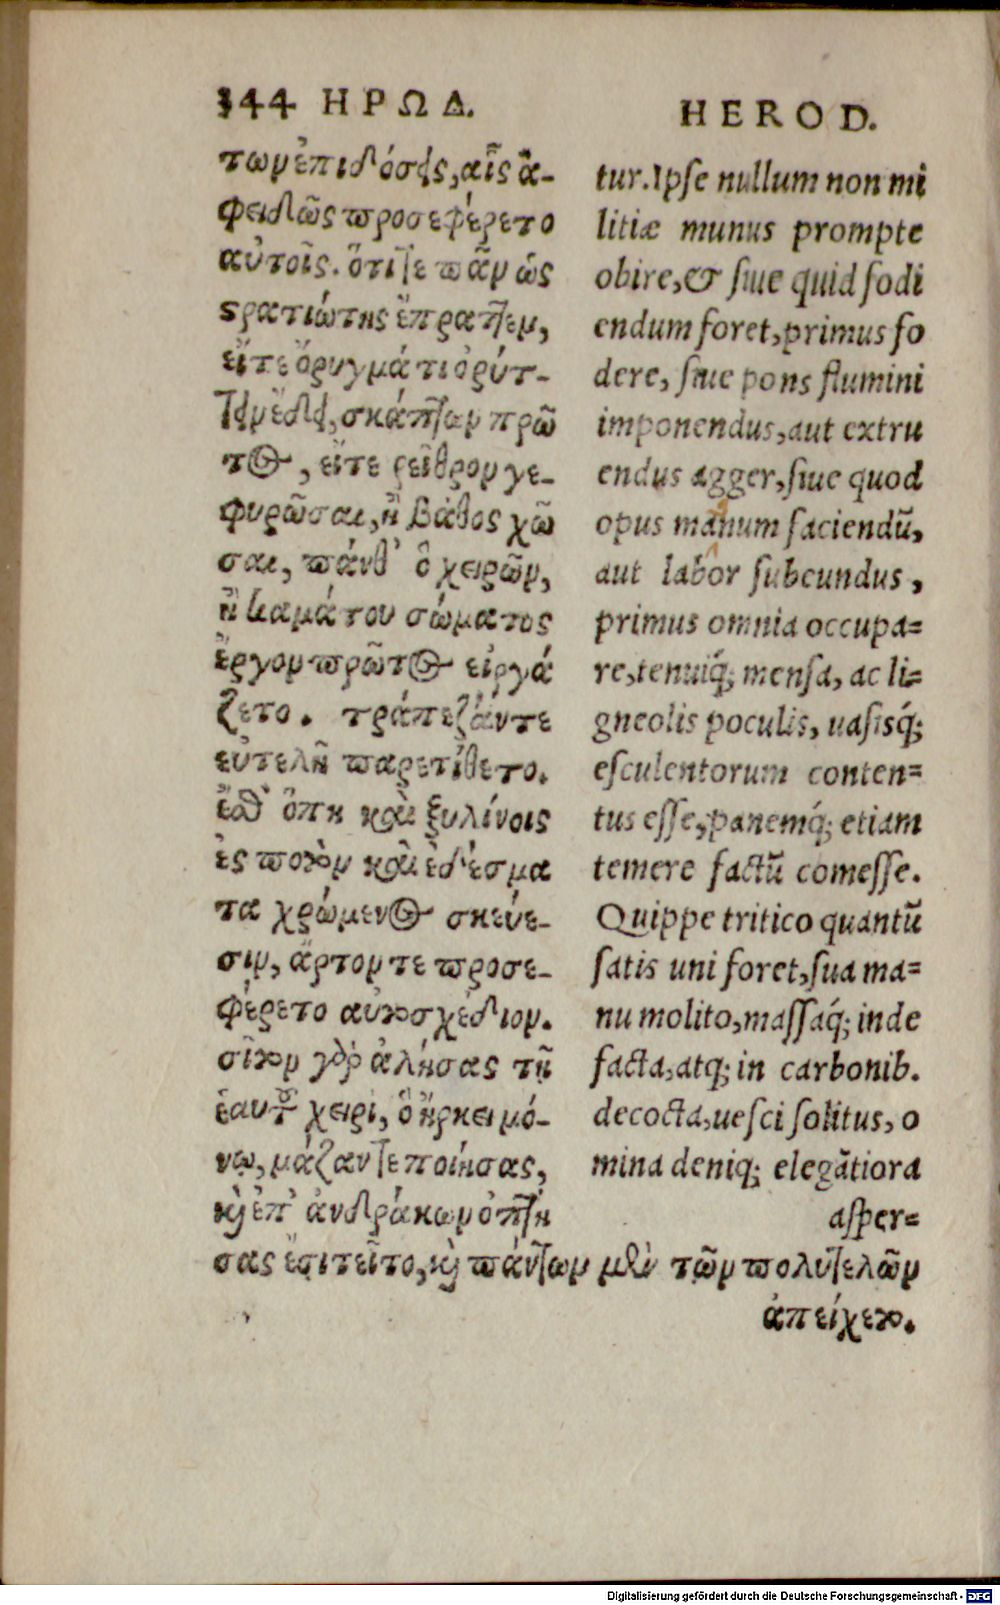 344 ΗΡΩΔ.
των ἐπιδόσεις, αἷς ἀ-
φειδῶς προσεφέρετο
αὐτοῖς. ὅτι τε πᾶν ὡς
στρατιώτης ἔπραττεν,
εἴτε ὄρυγμά τι ὀρύτ-
τειν ἔδει, σκάπτων πρῶ
τος, εἴτε ῥεῖθρον γε-
φυρῶσαι, ἢ βάθος χῶ
σαι, πάνθ' ὃ χειρῶν,
ἢ καμάτου σώματος
ἔργον πρῶτος εἰργά
ζετο. τράπεζάν τε
εὐτελῆ παρετίθετο.
ἔσθ' ὅπη καὶ ξυλίνοις
ἐς ποτὸν καὶ ἐδέσμα
τα χρώμενος σκεύε-
σιν, ἄρτον τε προσε-
φέρετο αὐτοσχέδιον.
σῖτον γὰρ ἀλήσας τῇ
ἑαυτοῦ χειρὶ, ὃ ἤρκει μό-
νῳ, μάζαν τε ποιήσας,
καὶ ἐπ' ἀνθράκων ὀπτή
σας ἐσιτεῖτο, καὶ πάντων μὲν τῶν πολυτελῶν
ἀπείχετο.
HEROD.
tur. Ipſe nullum non mi
litiæ munus prompte
obire, & ſiue quid fodi
endum foret, primus fo
dere, ſiue pons flumini
imponendus, aut extru
endus agger, ſiue quod
opus manum faciendũ,
aut labor ſubeundus,
primus omnia occupa=
re, tenuiq́; mensa, ac li=
gneolis poculis, uaſisq́;
eſculentorum conten=
tus eſſe, panemq́; etiam
temere factũ comeſſe.
Quippe tritico quantũ
ſatis uni foret, ſua ma=
nu molito, maſſaq́; inde
facta, atq; in carbonib.
decocta, ueſci ſolitus, o
mina deniq; elegãtiora
aſper=
Digitalisierung gefördert durch die Deutsche Forschungsgemeinschaft - DFG